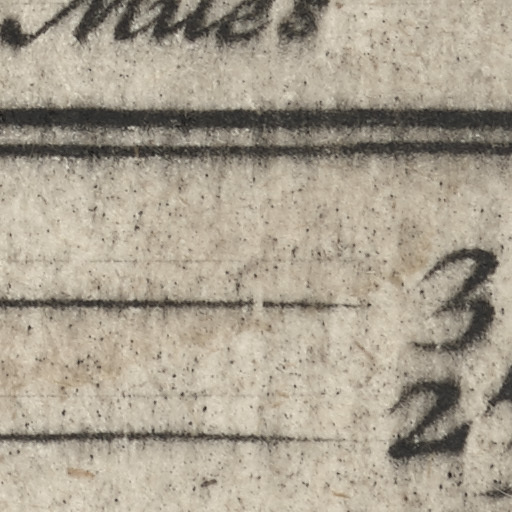 Males
3
2